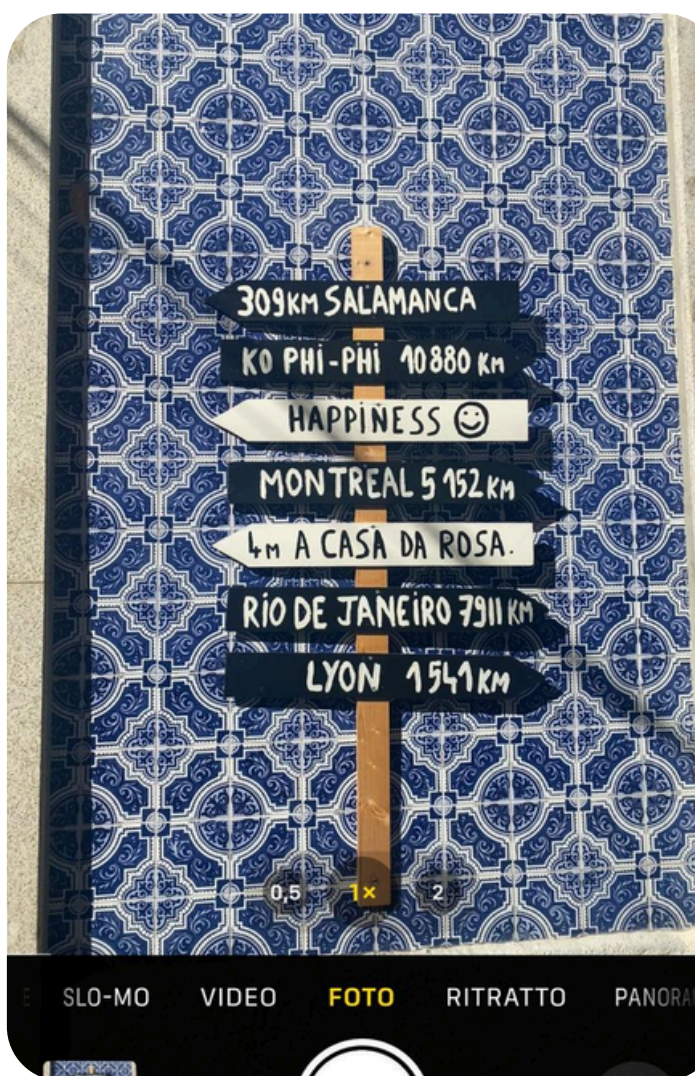 309KM SALAMANCA
KO PHI-PHI 10880 KM
HAPPINESS
MONTREAL 5 152 KM
4M A CASA DA ROSA.
RIO DE JANEIRO 7911 KM
LYON 1541 KM
0,5 1× 2
SLO-MO VIDEO FOTO RITRATTO